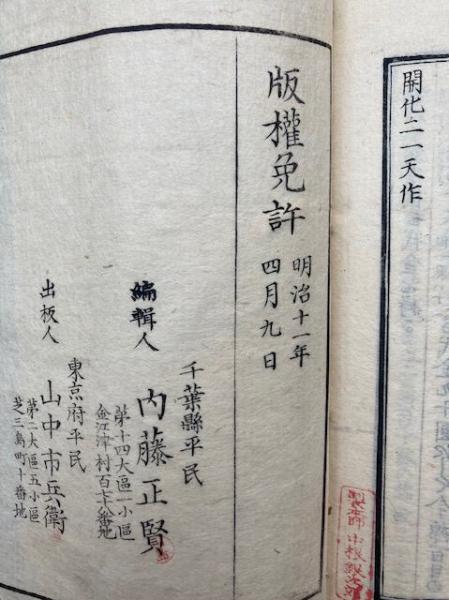 開化二一天作
版權免許
明治十一年
四月九日
千葉縣平民
編輯人
内藤正賢
第十四大區一小區
金江津村百六番地
東京府平民
出板人
山中市兵衛
第二大區五小區
芝三島町十番地